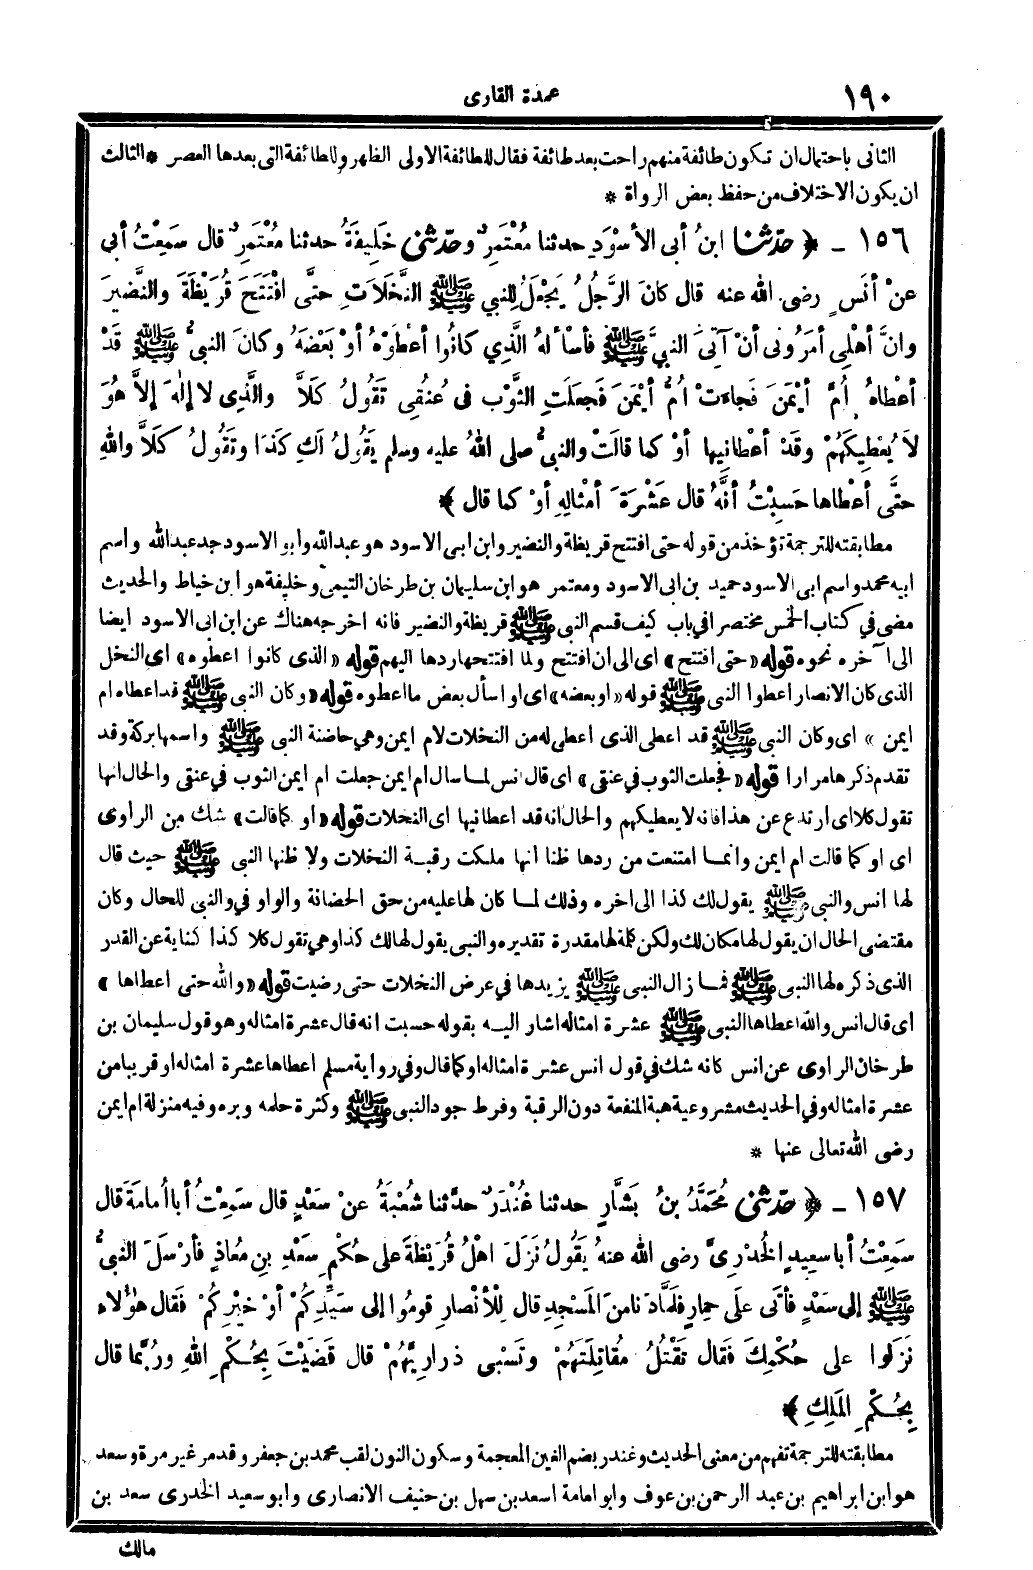 ١٩٠
عمدة القارى
الثانى باحتمال ان تكون طائفة منهم راحت بعد طائفة فقال للطائفة الاولى الظهر وللطائفة التى بعدها العصر * الثالث
ان يكون الاختلاف من حفظ بعض الرواة *
١٥٦ - ﴿ حدّثنا ابنُ أبى الأسْوَدِ حدثنا مُعْتَمِرٌ وحدّثنى خَلِيفَةُ حدثنا مُعْتَمِرٌ قال سَمِعْتُ أبى
عنْ أنَسٍ رضى الله عنه قال كانَ الرَّجُلُ يَجْعَلُ لِلنبي ﷺ النَّخَلاَتِ حتَّى افْتَتَحَ قُرَيْظَةَ والنَّضِيرَ
وانَّ أهْلِى أمَرُونى أنْ آتِىَ النبيَّ ﷺ فأسْألهُ الَّذِي كانُوا أعْطَوْهُ أوْ بَعْضَهُ وكانَ النبيُّ ﷺ قَدْ
أعْطاهُ أُمَّ أيْمَنَ فَجاءتْ أُمُّ أيْمَنَ فَجعَلَتِ الثَّوْبَ فى عُنُقِى تَقُولُ كَلاَّ والَّذِى لا إلٰهَ إلاَّ هُوَ
لاَ يُعْطِيكَهُمْ وقَدْ أعْطانِيها أوْ كما قالَتْ والنبيُّ صلى اللهُ عليه وسلم يَقُولُ لَكِ كَذَا وتَقُولُ كَلاَّ واللهِ
حتَّى أعْطاها حَسِبْتُ أنَّهُ قال عَشْرَةَ أمْثالِهِ أوْ كما قال ﴾
مطابقته للترجمة تؤخذ من قوله حتى افتتح قريظة والنضير وابن ابى الاسود هو عبدالله وابو الاسود جد عبدالله واسم
ابيه محمد واسم ابى الاسود حميد بن ابى الاسود ومعتمر هو ابن سليمان بن طرخان التيمى وخليفة هو ابن خياط والحديث
مضى في كتاب الخمس مختصرا في باب كيف قسم النبى ﷺ قريظة والنضير فانه اخرجه هناك عن ابن ابى الاسود ايضا
الى آخره نحوه قوله «حتى افتتح» اى الى ان افتتح ولما افتتحها ردها اليهم قوله «الذى كانوا اعطوه» اى النخل
الذى كان الانصار اعطوا النبى ﷺ قوله «او بعضه» اى او اسأل بعض ما اعطوه قوله «وكان النبى ﷺ قد اعطاه ام
ايمن » اى وكان النبى ﷺ قد اعطى الذى اعطى له من النخلات لام ايمن وهي حاضنة النبى ﷺ واسمها بركة وقد
تقدم ذكرها مرارا قوله «فجعلت الثوب في عنقى» اى قال انس لما سال ام ايمن جعلت ام ايمن الثوب في عنقى والحال انها
تقول كلا اى ارتدع عن هذا فانه لا يعطيكهم والحال انه قد اعطانيها اى النخلات قوله «او كما قالت» شك من الراوى
اى او كما قالت ام ايمن وانما امتنعت من ردها ظنا انها ملكت رقبة النخلات ولا ظنها النبى ﷺ حيث قال
لها انس والنبى ﷺ يقول لك كذا الى اخره وذلك لما كان لها عليه من حق الحضانة والواو في والنبى للحال وكان
مقتضى الحال ان يقول لها مكان لك ولكن كلمة لها مقدرة تقديره والنبى يقول لها لك كذا وهي تقول كلا كذا كناية عن القدر
الذى ذكره لها النبى ﷺ فما زال النبى ﷺ يزيدها في عرض النخلات حتى رضيت قوله «والله حتى اعطاها »
اى قال انس والله اعطاها النبى ﷺ عشرة امثاله اشار اليه بقوله حسبت انه قال عشرة امثاله وهو قول سليمان بن
طرخان الراوى عن انس كانه شك في قول انس عشرة امثاله او كما قال وفي رواية مسلم اعطاها عشرة امثاله او قريبا من
عشرة امثاله وفي الحديث مشروعية هبة المنفعة دون الرقبة وفرط جود النبى ﷺ وكثرة حلمه وبره وفيه منزلة ام ايمن
رضى الله تعالى عنها *
١٥٧ - ﴿ حدّثنى مُحَمَّدُ بنُ بَشَّارٍ حدثنا غُنْدَرٌ حدَّثنا شُعْبَةُ عنْ سَعْدٍ قال سَمِعْتُ أبا أُمامَةَ قال
سَمِعْتُ أبا سعِيدٍ الخُدْرِىَّ رضى اللهُ عنهُ يَقُولُ نَزَلَ اهْلُ قُرَيْظَةَ على حُكْمِ سَعْدِ بنِ مُعاذٍ فأرْسَلَ النبيُّ
ﷺ إلى سَعْدٍ فأتَى علَى حِمارٍ فَلمَّا دَنا مِنَ المَسْجِدِ قال لِلْأنْصارِ قومُوا إلى سَيِّدِكُمْ أوْ خيْرِكُمْ فَقال هٰؤُلاء
نَزَلُوا على حُكْمِكَ فَقال تَقْتُلُ مُقاتِلَتَهُمْ وتَسْبى ذرارِيَّهُمْ قال قَضَيْتَ بِحُكْمِ اللهِ ورُبَّما قال
بِحُكْمِ المَلِكِ ﴾
مطابقته للترجمة تفهم من معنى الحديث وغندر بضم الغين المعجمة وسكون النون لقب محمد بن جعفر وقد مر غير مرة وسعد
هو ابن ابراهيم بن عبد الرحمن بن عوف وابو امامة اسعد بن سهل بن حنيف الانصارى وابو سعيد الخدرى سعد بن
مالك